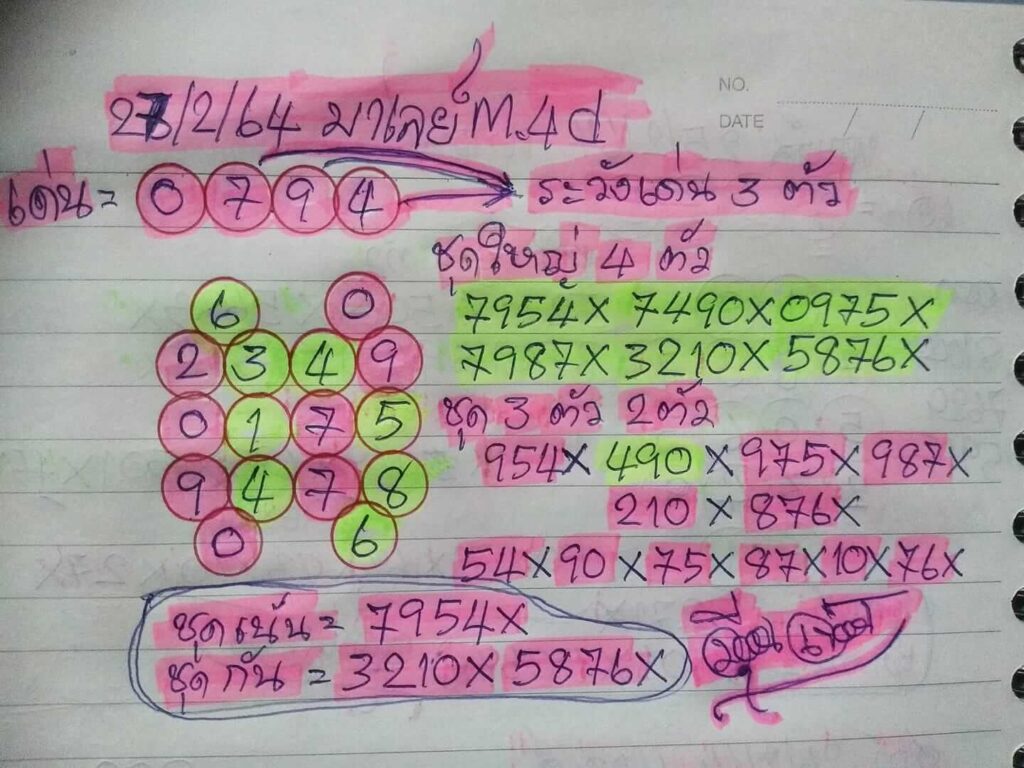 NO.
DATE / /
27/2/64 มาเลย์ M.4d
เด่น = 0 7 9 4 ระวังเด่น 3 ตัว
ชุดใหญ่ 4 ตัว
6 0
7954X 7490X 0975X
2 3 4 9
7987X 3210X 5876X
0 1 7 5
ชุด 3 ตัว 2 ตัว
954X 490 X 975X 987X
9 4 7 8
210 X 876X
0 6
54X 90 X 75X 87X 10X 76X
ชุดเน้น = 7954X
ชุดกัน = 3210X 5876X